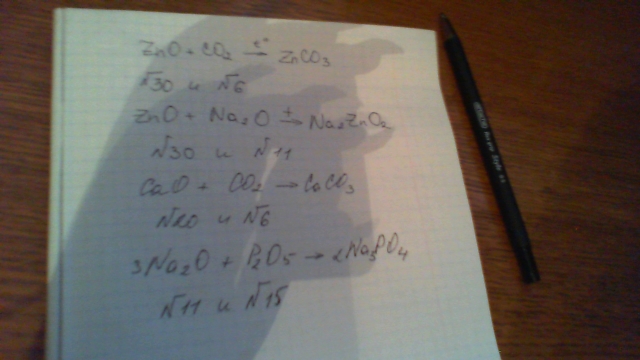 ZnO + CO₂ →t° ZnCO₃
№30 и №6
ZnO + Na₂O →t Na₂ZnO₂
№30 и №11
CaO + CO₂ → CaCO₃
№20 и №6
3Na₂O + P₂O₅ → 2Na₃PO₄
№11 и №15